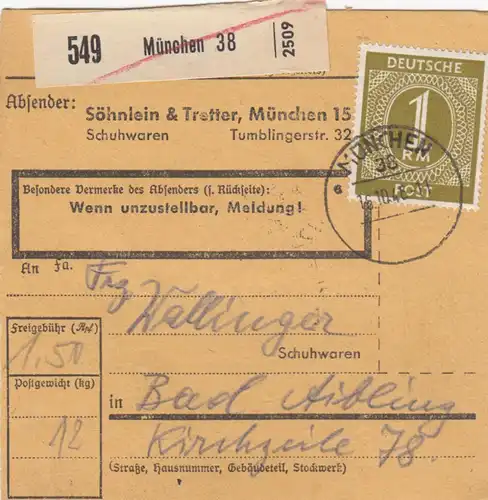 549 München 38 2509
DEUTSCHE
1
RM
POST
MÜNCHEN
38
Absender: Söhnlein & Tretter, München 15
Schuhwaren Tumblingerstr. 32
Besondere Vermerke des Absenders (s. Rückseite):
Wenn unzustellbar, Meldung!
An Fa.
Frz
Wallinger
Schuhwaren
Freigebühr (Rpf)
1.50
Postgewicht (kg)
12
in Bad Aibling
Kirchzeile 78
(Straße, Hausnummer, Gebäudeteil, Stockwerk)